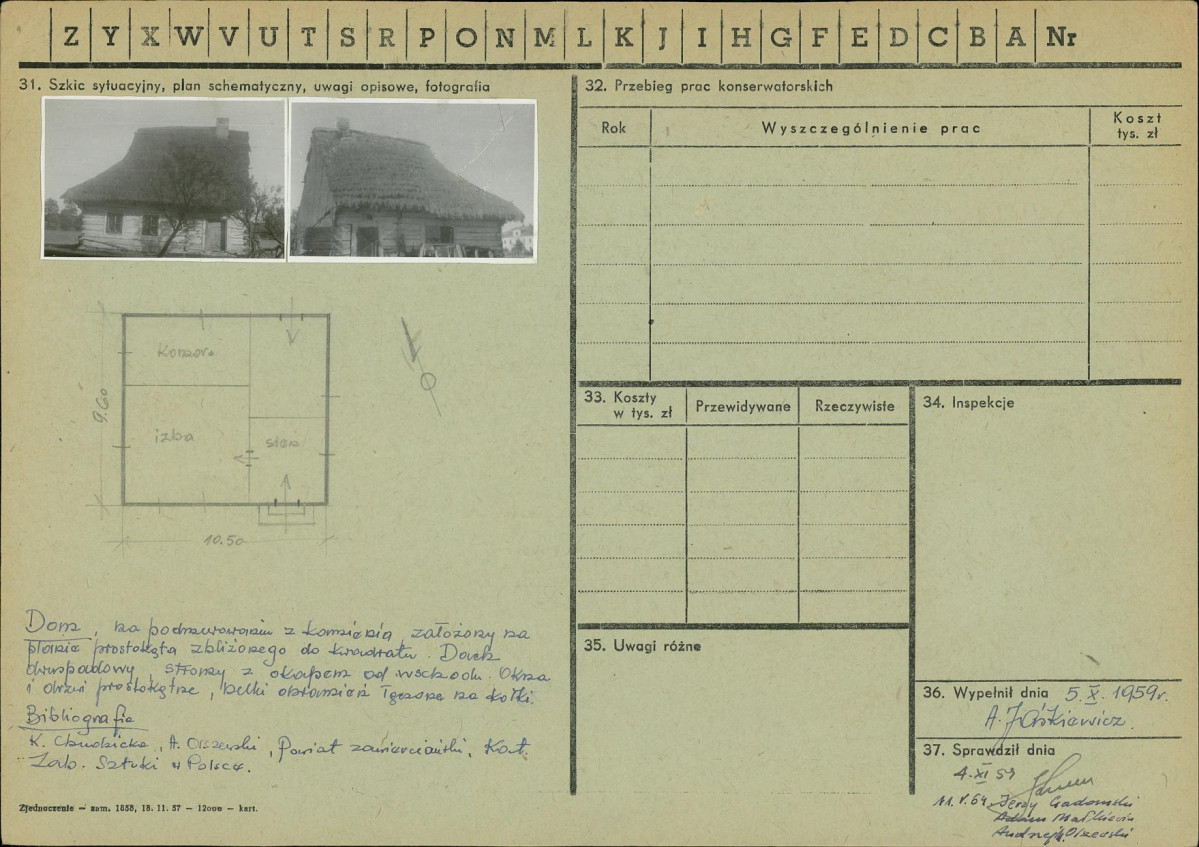 Z Y X W V U T S R P O N M L K J I H G F E D C B A Nr
31. Szkic sytuacyjny, plan schematyczny, uwagi opisowe, fotografia
Komora
izba
sień
9.60
10.50
Dom, na podmurowaniu z kamienia założony na
planie prostokąta zbliżonego do kwadratu. Dach
dwuspadowy, stromy z okapem od wschodu. Okna
i drzwi prostokątne, belki obramień łączone na kołki.
Bibliografia
K. , A. Olszewski, Powiat zawierciański, Kat.
Zab. Sztuki w Polsce.
Zjednoczenie — zam. 1858, 18. 11. 57 — 12000 — kart.
32. Przebieg prac konserwatorskich
Rok
Wyszczególnienie prac
Koszt
tys. zł
33. Koszty
w tys. zł
Przewidywane
Rzeczywiste
34. Inspekcje
35. Uwagi różne
36. Wypełnił dnia 5. X. 1959r.
A. Jaśkiewicz
37. Sprawdził dnia
4. XI 59
11. V. 64. Jerzy Gadomski
Adam
Andrzej Olszewski